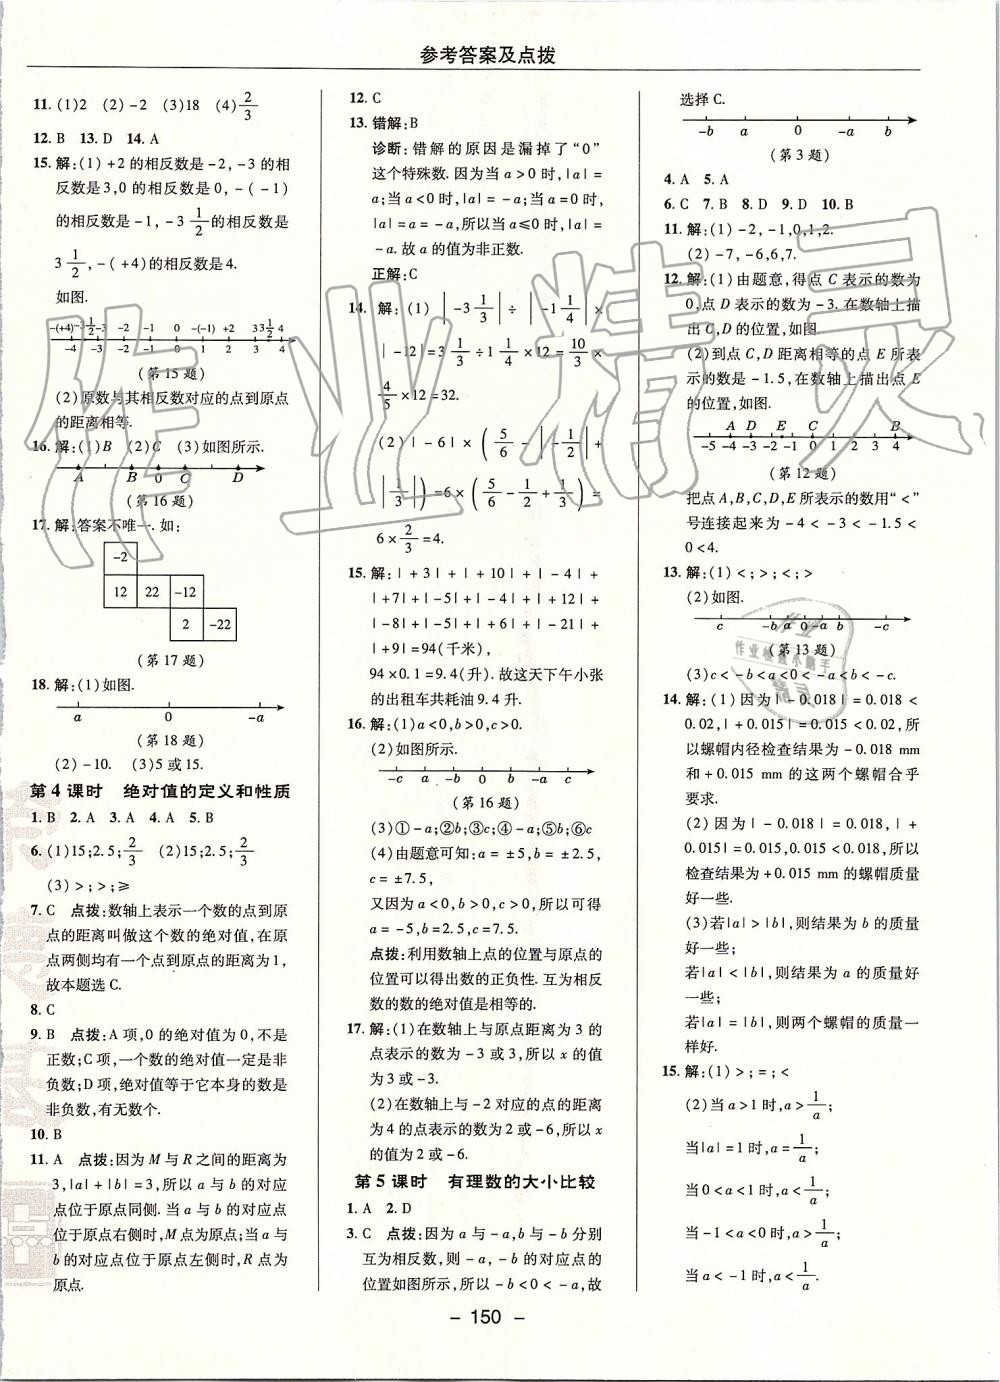 参考答案及点拨
11. (1)2 (2)-2 (3)18 (4)2/3
12. B 13. D 14. A
15. 解:(1)+2的相反数是-2,-3的相
反数是3,0的相反数是0,-(-1)
的相反数是-1,-3 1/2的相反数是
3 1/2,-(+4)的相反数是4.
如图.
-(+4) -3 1/2 -3 -2 -1 0 -(-1) +2 3 3 1/2 4
-4 -3 -2 -1 0 1 2 3 4
(第15题)
(2)原数与其相反数对应的点到原点
的距离相等.
16. 解:(1)B (2)C (3)如图所示.
A B 0 C D
(第16题)
17. 解:答案不唯一. 如:
-2
12 22 -12
2 -22
(第17题)
18. 解:(1)如图.
a 0 -a
(第18题)
(2)-10. (3)5或15.
第4课时 绝对值的定义和性质
1. B 2. A 3. A 4. A 5. B
6. (1)15;2.5;2/3 (2)15;2.5;2/3
(3)>;>;≥
7. C 点拨:数轴上表示一个数的点到原
点的距离叫做这个数的绝对值,在原
点两侧均有一个点到原点的距离为1,
故本题选C.
8. C
9. B 点拨:A项,0的绝对值为0,不是
正数;C项,一个数的绝对值一定是非
负数;D项,绝对值等于它本身的数是
非负数,有无数个.
10. B
11. A 点拨:因为M与R之间的距离为
3,|a|+|b|=3,所以a与b的对应
点位于原点同侧. 当a与b的对应点
位于原点右侧时,M点为原点;当a与
b的对应点位于原点左侧时,R点为
原点.
12. C
13. 错解:B
诊断:错解的原因是漏掉了“0”
这个特殊数. 因为当a>0时,|a|=
a;当a<0时,|a|=-a;当a=0时,
|a|=a=-a,所以当a≤0时,|a|=
-a. 故a的值为非正数.
正解:C
14. 解:(1)|-3 1/3|÷|-1 1/4|×
|-12|=3 1/3÷1 1/4×12=10/3×
4/5×12=32.
(2)|-6|×(5/6-|-1/2|+
|1/3|)=6×(5/6-1/2+1/3)=
6×2/3=4.
15. 解:|+3|+|+10|+|-4|+
|+7|+|-5|+|-4|+|+12|+
|-8|+|-5|+|+6|+|-21|+
|+9|=94(千米),
94×0.1=9.4(升). 故这天下午小张
的出租车共耗油9.4升.
16. 解:(1)a<0,b>0,c>0.
(2)如图所示.
-c a -b 0 b -a c
(第16题)
(3)①-a;②b;③c;④-a;⑤b;⑥c
(4)由题意可知:a=±5,b=±2.5,
c=±7.5,
又因为a<0,b>0,c>0,所以可得
a=-5,b=2.5,c=7.5.
点拨:利用数轴上点的位置与原点的
位置可以得出数的正负性. 互为相反
数的数的绝对值是相等的.
17. 解:(1)在数轴上与原点距离为3的
点表示的数为-3或3,所以x的值
为3或-3.
(2)在数轴上与-2对应的点的距离
为4的点表示的数为2或-6,所以x
的值为2或-6.
第5课时 有理数的大小比较
1. A 2. D
3. C 点拨:因为a与-a,-b与b分别
互为相反数,则-a,-b的对应点的
位置如图所示,所以-b<0<-a,故
选择C.
-b a 0 -a b
(第3题)
4. A 5. A
6. C 7. B 8. D 9. D 10. B
11. 解:(1)-2,-1,0,1,2.
(2)-7,-6,6,7.
12. 解:(1)由题意,得点C表示的数为
0,点D表示的数为-3. 在数轴上描
出C,D的位置,如图.
(2)到点C,D距离相等的点E所表
示的数是-1.5,在数轴上描出点E
的位置,如图.
A D E C B
-5 -4 -3 -2 -1 0 1 2 3 4
(第12题)
把点A,B,C,D,E所表示的数用“<”
号连接起来为-4<-3<-1.5<
0<4.
13. 解:(1)<;>;<;>
(2)如图.
c -b a 0 -a b -c
(第13题)
(3)c<-b<a<0<-a<b<-c.
14. 解:(1)因为|-0.018|=0.018<
0.02,|+0.015|=0.015<0.02,所
以螺帽内径检查结果为-0.018 mm
和+0.015 mm的这两个螺帽合乎
要求.
(2)因为|-0.018|=0.018,|+
0.015|=0.015,0.015<0.018,所以
检查结果为+0.015 mm的螺帽质量
好一些.
(3)若|a|>|b|,则结果为b的质量
好一些;
若|a|<|b|,则结果为a的质量好
一些;
若|a|=|b|,则两个螺帽的质量一
样好.
15. 解:(1)>;=;<
(2)当a>1时,a>1/a;
当|a|=1时,a=1/a;
当0<a<1时,a<1/a;
当-1<a<0时,a>1/a;
当a<-1时,a<1/a.
- 150 -
作业精灵